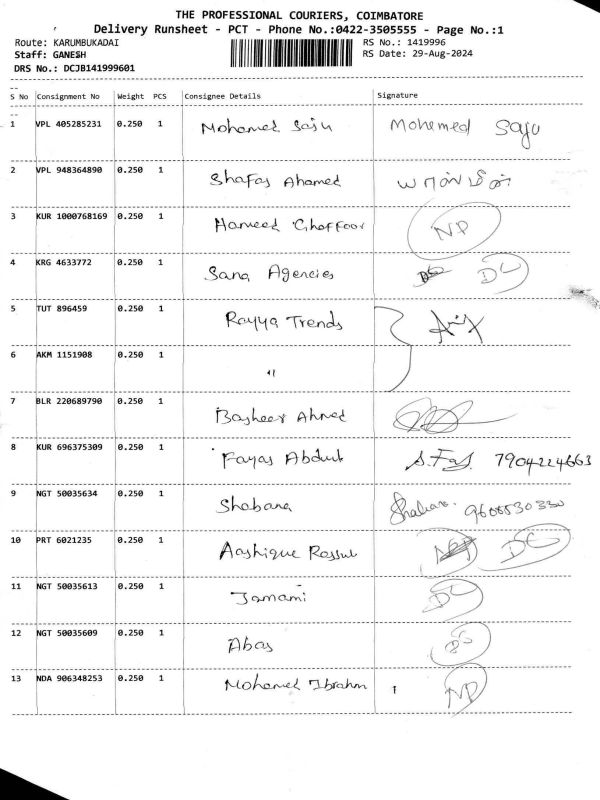 THE PROFESSIONAL COURIERS, COIMBATORE
Delivery Runsheet - PCT - Phone No.:0422-3505555 - Page No.:1
Route: KARUMBUKADAI RS No.: 1419996
Staff: GANESH RS Date: 29-Aug-2024
DRS No.: DCJB141999601
S No Consignment No Weight PCS Consignee Details Signature
1 VPL 405285231 0.250 1 Mohamed Saju Mohemed Saju
2 VPL 948364890 0.250 1 Shafas Ahamed யாஸ்மின்
3 KUR 1000768169 0.250 1 Hameed Ghaffoor NP
4 KRG 4633772 0.250 1 Sana Agencies DC
5 TUT 896459 0.250 1 Rayya Trends
6 AKM 1151908 0.250 1 "
7 BLR 220689790 0.250 1 Basheer Ahmed
8 KUR 696375309 0.250 1 Fayas Abdul S.Fay. 7904224663
9 NGT 50035634 0.250 1 Shabana 9600530330
10 PRT 6021235 0.250 1 Aashique Rassul DC
11 NGT 50035613 0.250 1 Jamami DC
12 NGT 50035609 0.250 1 Abas
13 NDA 906348253 0.250 1 Mohamed Ibrahm NP